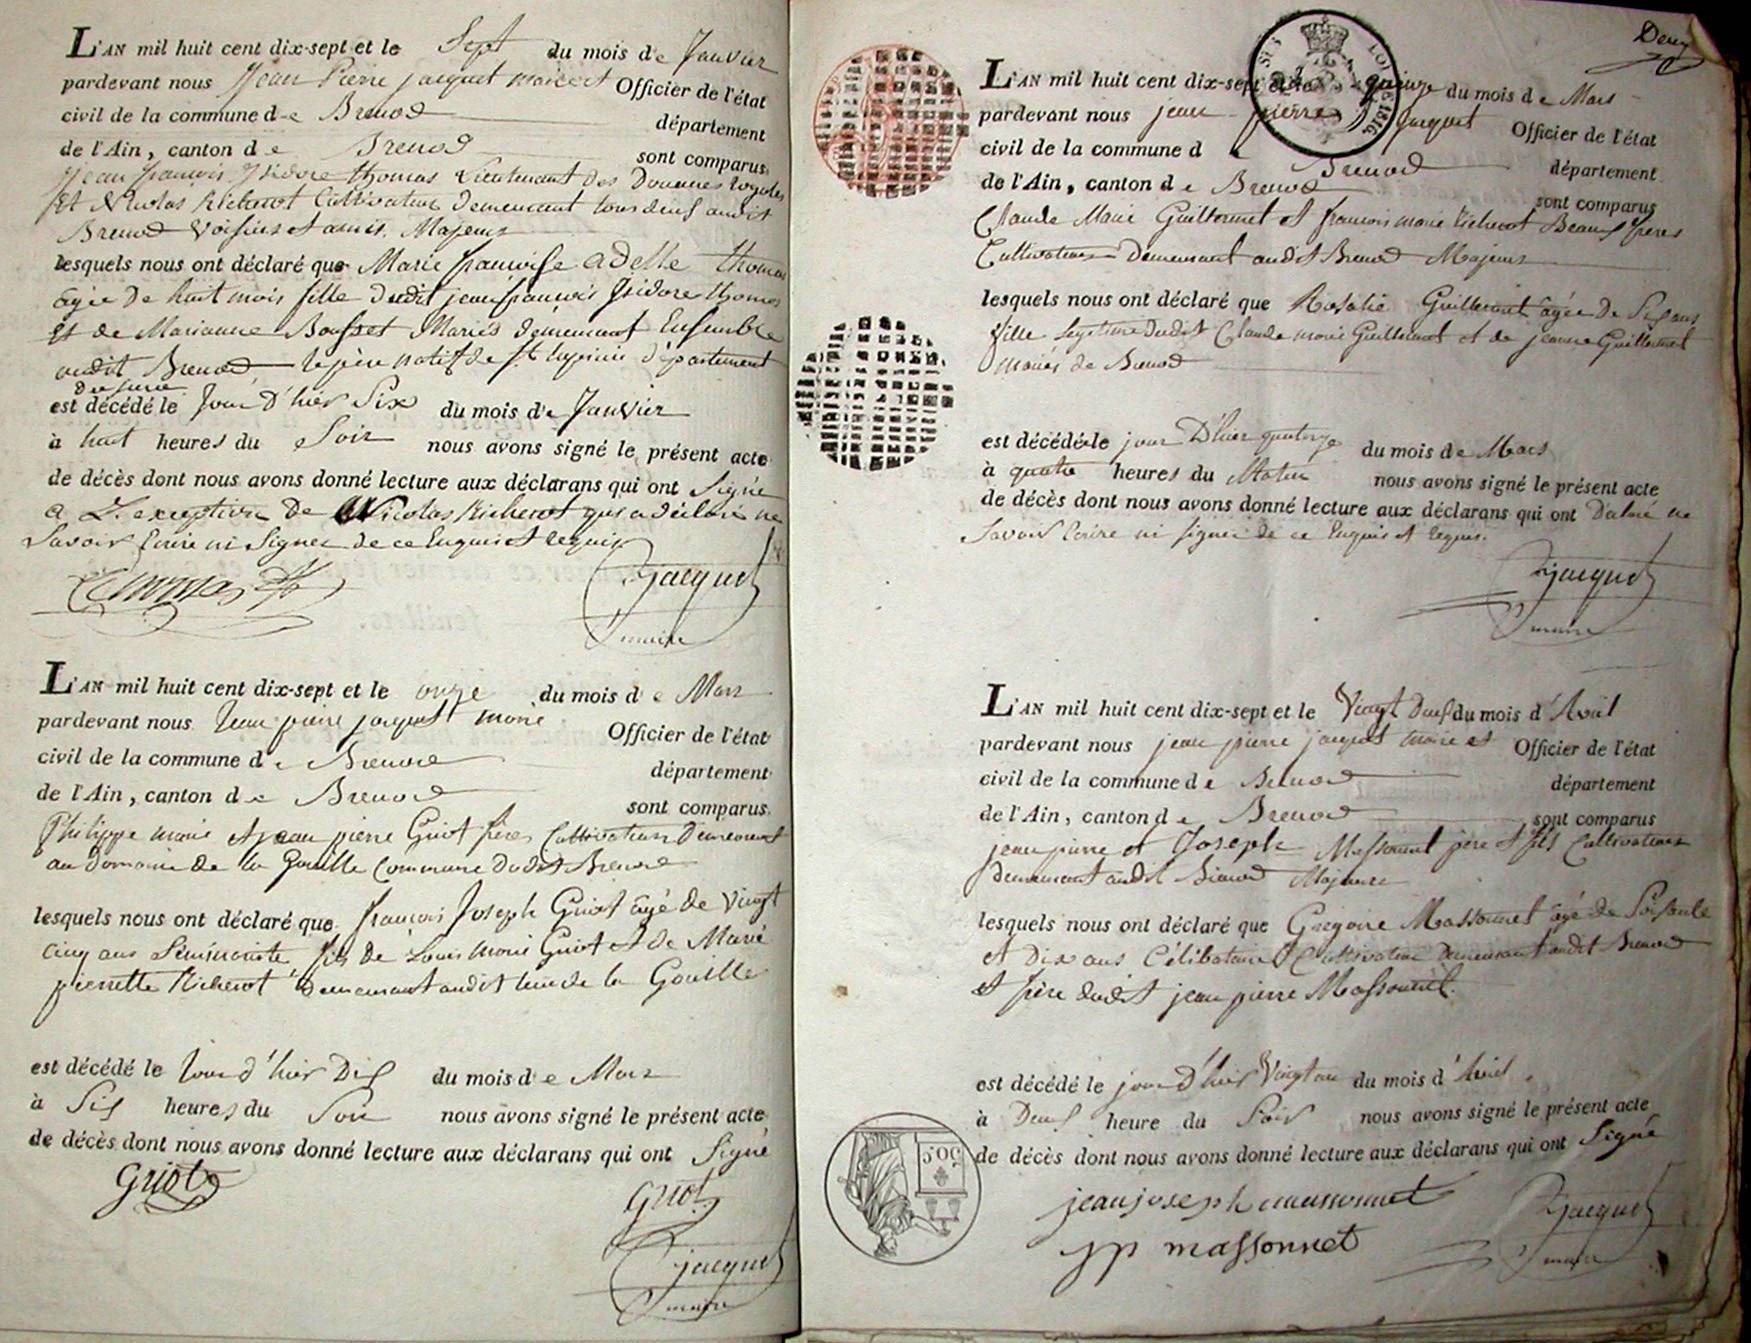 L'AN mil huit cent dix-sept et le Sept du mois de Janvier
pardevant nous Jean Pierre jacquet maire et Officier de l'état
civil de la commune de Brenod département
de l'Ain, canton de Brenod sont comparus
Jean francois Isidore thomas Lieutenant des Douanes royales
Et Nicolas Richerot Cultivateur demeurant tous deux audit
Brenod Voisins et amis Majeurs
lesquels nous ont déclaré que Marie francoise adelle thomas
agée de huit mois fille dudit jean francois Isidore thomas
Et de Marianne Bousset Mariés demeurant Ensemble
audit Brenod le père natif de St. département
du jura
est décédé le Jour d'hier Six du mois de Janvier
à huit heures du Soir nous avons signé le présent acte
de décès dont nous avons donné lecture aux déclarans qui ont Signé
a L'exception de Nicolas Richerot qui a déclaré ne
Savoir Ecrire ni Signer de ce Enquis et requis
Thomas Rjacquet
maire
L'AN mil huit cent dix-sept et le onze du mois de Mars
pardevant nous Jean pierre jacquet maire Officier de l'état
civil de la commune de Brenod département
de l'Ain, canton de Brenod sont comparus
Philippe marie et jean pierre Griot frères Cultivateurs Demeurant
au domaine de la Gouille Commune dudit Brenod
lesquels nous ont déclaré que francois Joseph Griot âgé de Vingt
cinq ans Séminariste fils de Louis marie Griot et de Marie
pierrette Richerot demeurant audit lieu de la Gouille
est décédé le Jour d'hier Dix du mois de Mars
à Six heures du Soir nous avons signé le présent acte
de décès dont nous avons donné lecture aux déclarans qui ont Signé
Griot Griot
jacquet
maire
Deux
SIES LOI DE 1816
L'AN mil huit cent dix-sept et le quinze du mois de Mars
pardevant nous jean pierre jacquet Officier de l'état
civil de la commune d e Brenod département
de l'Ain, canton de Brenod sont comparus
Claude Marie Guillermet et francois marie Richerot Beaux frères
Cultivateurs Demeurant audit Brenod Majeurs
lesquels nous ont déclaré que Rosalie Guillermet agée de Six ans
fille legitime dudit Claude marie Guillermet et de jeanne Guillermet
mariés de Brenod
est décédé le jour D'hier quatorze du mois de Mars
à quatre heures du Matin nous avons signé le présent acte
de décès dont nous avons donné lecture aux déclarans qui ont Déclaré ne
Savoir Ecrire ni signer de ce Enquis et requis.
Rjacquet
maire
L'AN mil huit cent dix-sept et le Vingt Deux du mois d'Avril
pardevant nous jean pierre jacquet maire et Officier de l'état
civil de la commune de Brenod département
de l'Ain, canton de Brenod sont comparus
jean pierre et Joseph Massonnet père et fils Cultivateurs
demeurant audit Brenod Majeurs
lesquels nous ont déclaré que Grégoire Massonnet âgé de Soixante
et Dix ans Célibataire Cultivateur Demeurant audit Brenod
et frère dudit jean pierre Massonnet.
est décédé le jour D'hier Vingt un du mois d'Avril
à Deux heure du Soir nous avons signé le présent acte
de décès dont nous avons donné lecture aux déclarans qui ont Signé
50 C.
jean joseph massonnet Rjacquet
jp massonnet maire